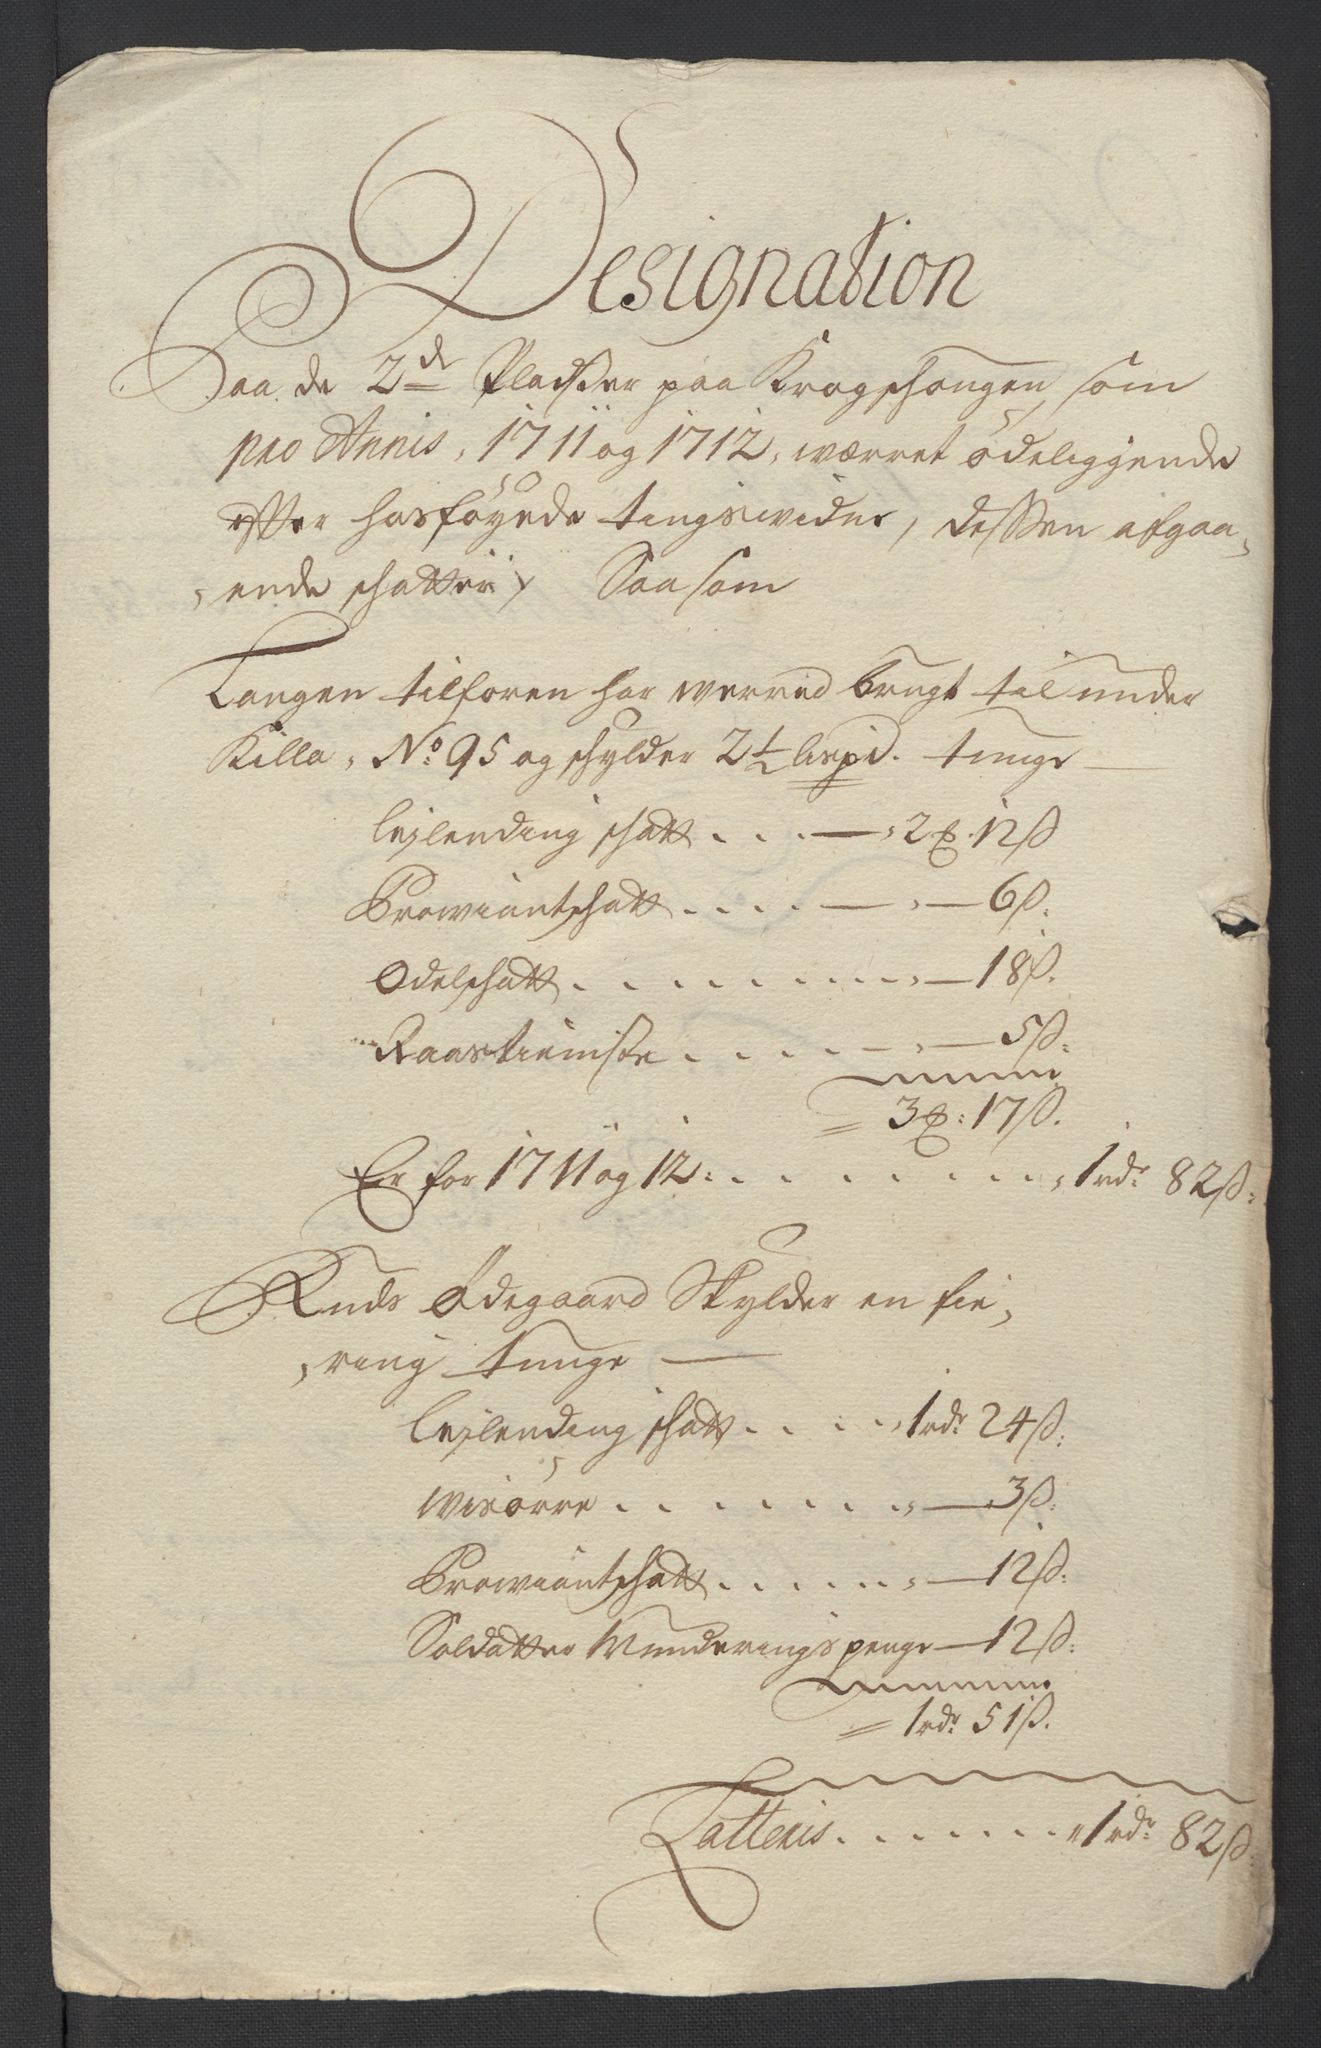 Designation
Paa de 2de Pladser paa Krogschougen som
pro Annis, 1711 og 1712, værret ödeliggende
efter hosföyede tingswidne, dessen afgaa,
,ende schatter, Saasom
Langen tilforen har werred brugt til under
Killa, No: 95 og schylder 2½ lispd. tunge
lejlending schatt . . . — , 2 ꝳ. 12 ß
Prowiantschatt . . . . — , — 6 ß.
Odelschatt . . . . . . . . , — 18 ß.
Raastieniste . . . . — , — 5 ß:
= 3 ꝳ: 17 ß.
Er for 1711 og 12: . . . . . . . , 1 rdr 82 ß:
Ruds Ödegaard Skylder en fie,
,ring tunge —
lejlending schatt . . . . , 1 rdr 24 ß:
Wisörre . . . . . . . , — 3 ß:
Prowiantschatt . . . . . , — 12 ß:
Soldatter Munderings penge — 12 ß:
= 1 rdr 51 ß.
Latteris . . . . . . . " 1 rdr 82 ß